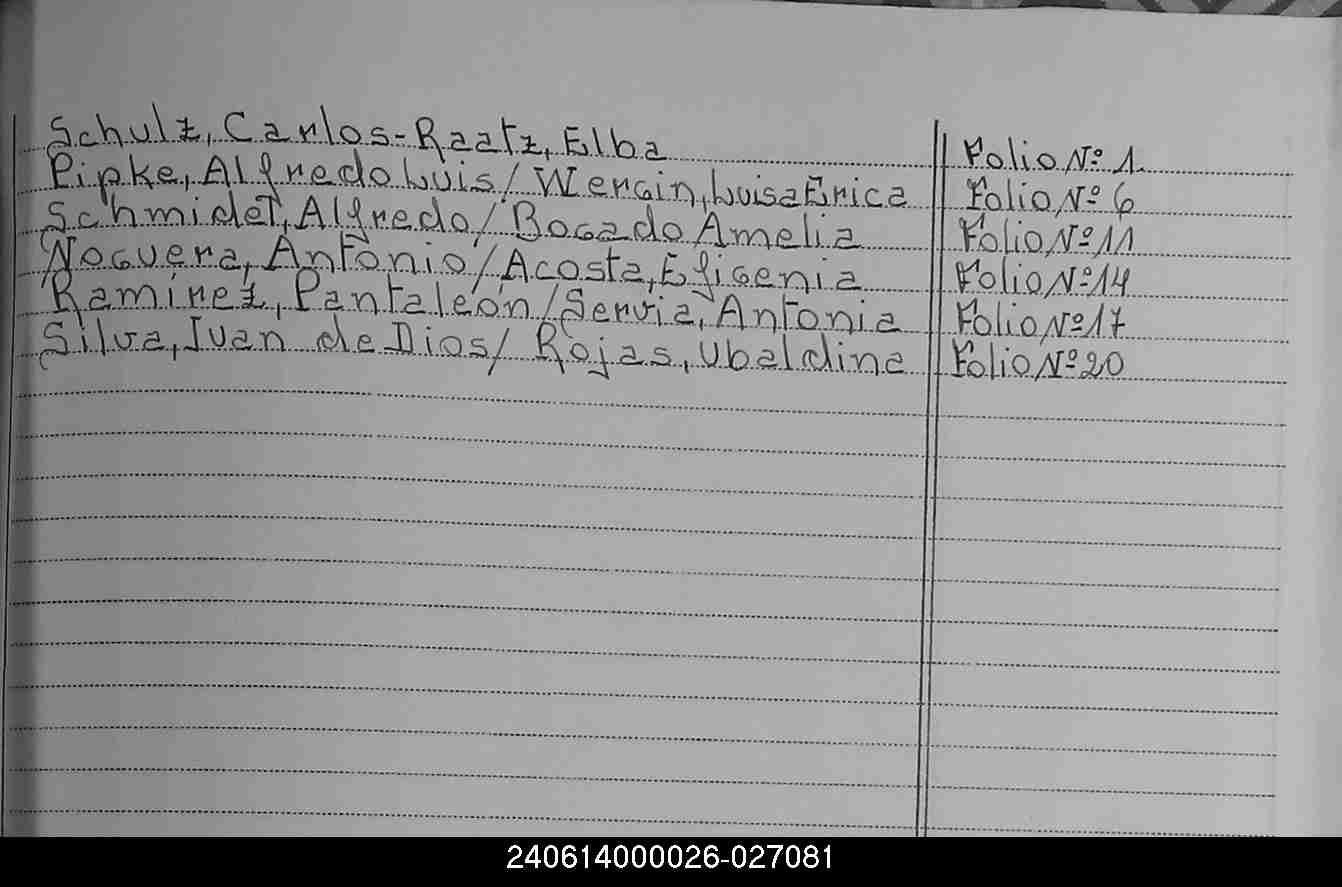 Schulz, Carlos-Raatz, Elba Folio Nº 1.
Pipke, Alfredo Luis/ Wergin, Luisa Erica Folio Nº 6
Schmidt, Alfredo/ Bogado Amelia Folio Nº 11
Noguera, Antonio/ Acosta, Efigenia Folio Nº 14
Ramírez, Pantaleón/ Servia, Antonia Folio Nº 17
Silva, Juan de Dios/ Rojas, Ubaldina Folio Nº 20
240614000026-027081